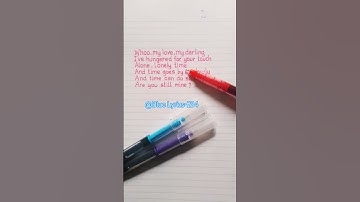 Whoo, my love, my darling
I've hungered for your touch
Alone, lonely time
And time goes by
And time can do so
Are you still mine ?
@Blue Lyrics 224